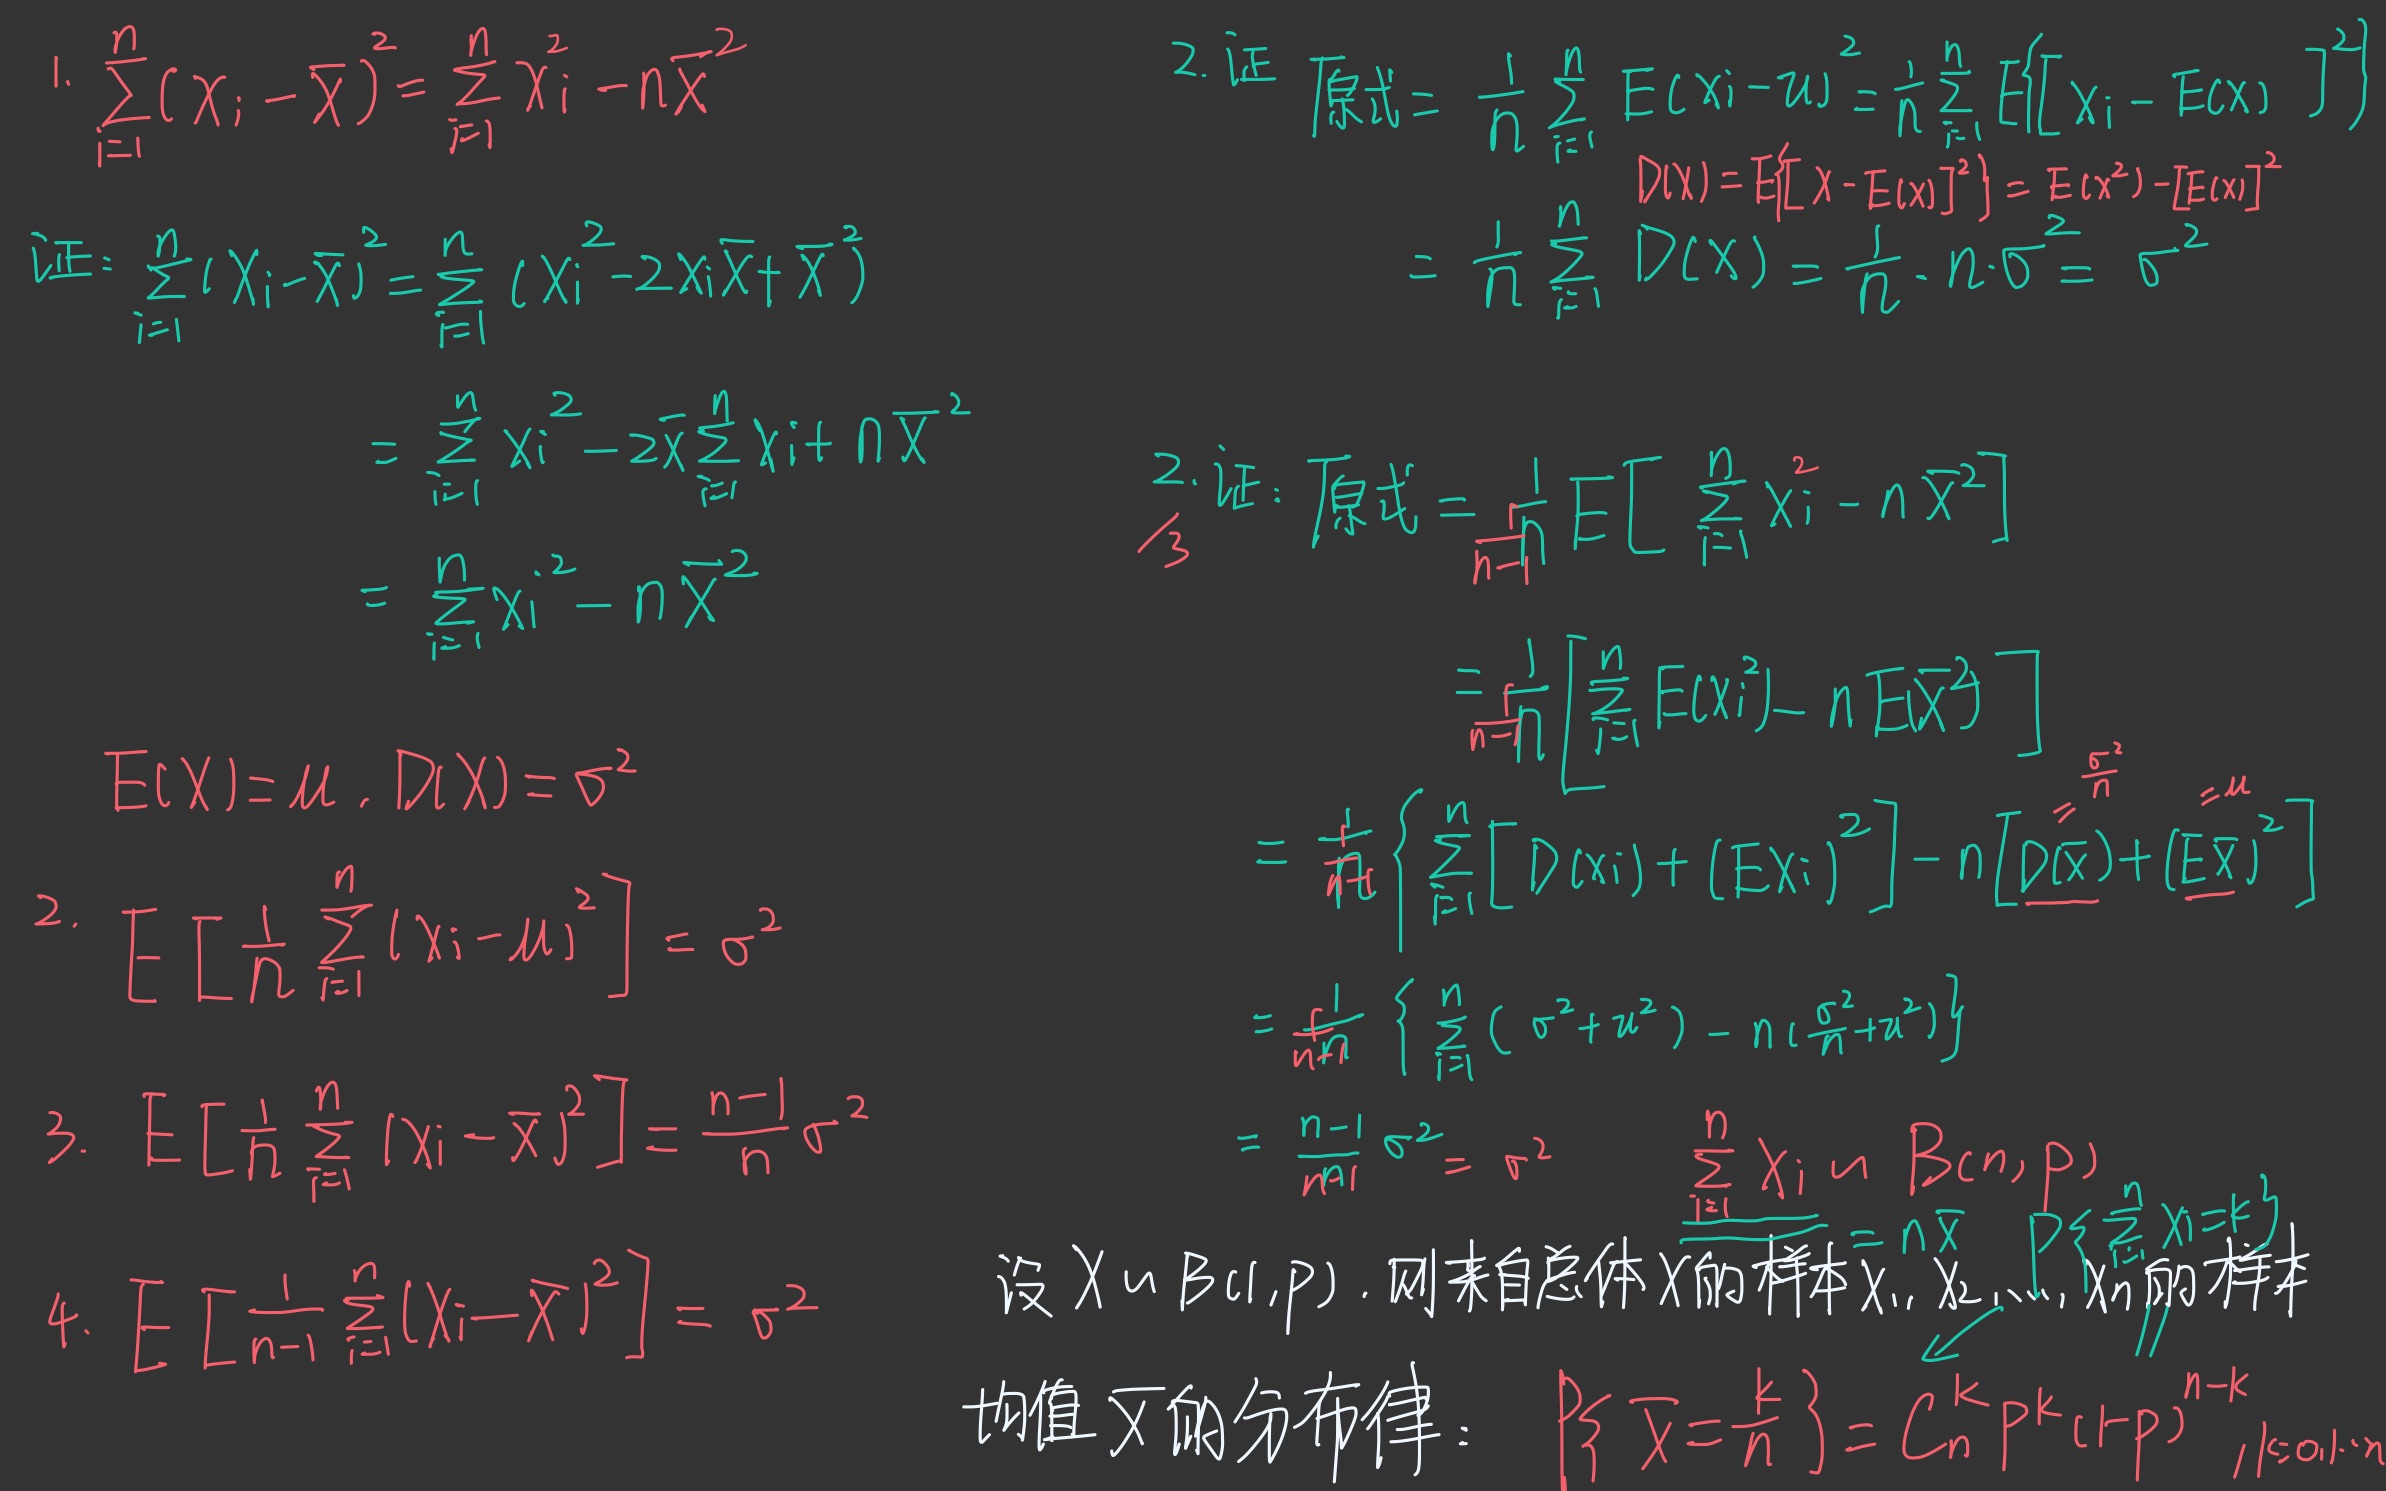 1. $\sum_{i=1}^{n}(X_i-\overline{X})^2=\sum_{i=1}^{n}X_i^2-n\overline{X}^2$
证: $\sum_{i=1}^{n}(X_i-\overline{X})^2=\sum_{i=1}^{n}(X_i^2-2X_i\overline{X}+\overline{X}^2)$
$=\sum_{i=1}^{n}X_i^2-2\overline{X}\sum_{i=1}^{n}X_i+n\overline{X}^2$
$=\sum_{i=1}^{n}X_i^2-n\overline{X}^2$
$E(X)=\mu, D(X)=\sigma^2$
2. $E[\frac{1}{n}\sum_{i=1}^{n}(X_i-\mu)^2]=\sigma^2$
3. $E[\frac{1}{n}\sum_{i=1}^{n}(X_i-\overline{X})^2]=\frac{n-1}{n}\sigma^2$
4. $E[\frac{1}{n-1}\sum_{i=1}^{n}(X_i-\overline{X})^2]=\sigma^2$
2. 证 原式 $=\frac{1}{n}\sum_{i=1}^{n}E(X_i-\mu)^2=\frac{1}{n}\sum_{i=1}^{n}E\{[X_i-E(X)]^2\}$
$D(X)=E\{[X-E(X)]^2\}=E(X^2)-[E(X)]^2$
$=\frac{1}{n}\sum_{i=1}^{n}D(X)=\frac{1}{n}\cdot n\cdot\sigma^2=\sigma^2$
2. 证: 原式 $=\frac{1}{n}E[\sum_{i=1}^{n}X_i^2-n\overline{X}^2]$
/3 $\frac{1}{n-1}$
$=\frac{1}{n}[\sum_{i=1}^{n}E(X_i^2)-nE(\overline{X}^2)]$
$\frac{1}{n-1}$
$=\frac{\sigma^2}{n}$ $=\mu$
$=\frac{1}{n}\{\sum_{i=1}^{n}[D(X_i)+(EX_i)^2]-n[D(\overline{X})+(E\overline{X})^2]$
$\frac{1}{n-1}$
$=\frac{1}{n}\{\sum_{i=1}^{n}(\sigma^2+\mu^2)-n(\frac{\sigma^2}{n}+\mu^2)\}$
$\frac{1}{n-1}$
$=\frac{n-1}{n-1}\sigma^2=\sigma^2$
$\sum_{i=1}^{n}X_i\sim B(n,p)$
$=n\overline{X}$ $P\{\sum_{i=1}^{n}X_i=k\}$
设 $X\sim B(1,p)$. 则来自总体X的样本 $X_1,X_2,\dots,X_n$ 的样本
均值 $\overline{X}$ 的分布律: $P\{\overline{X}=\frac{k}{n}\}=C_n^k P^k(1-p)^{n-k}, k=0,1\cdots n$